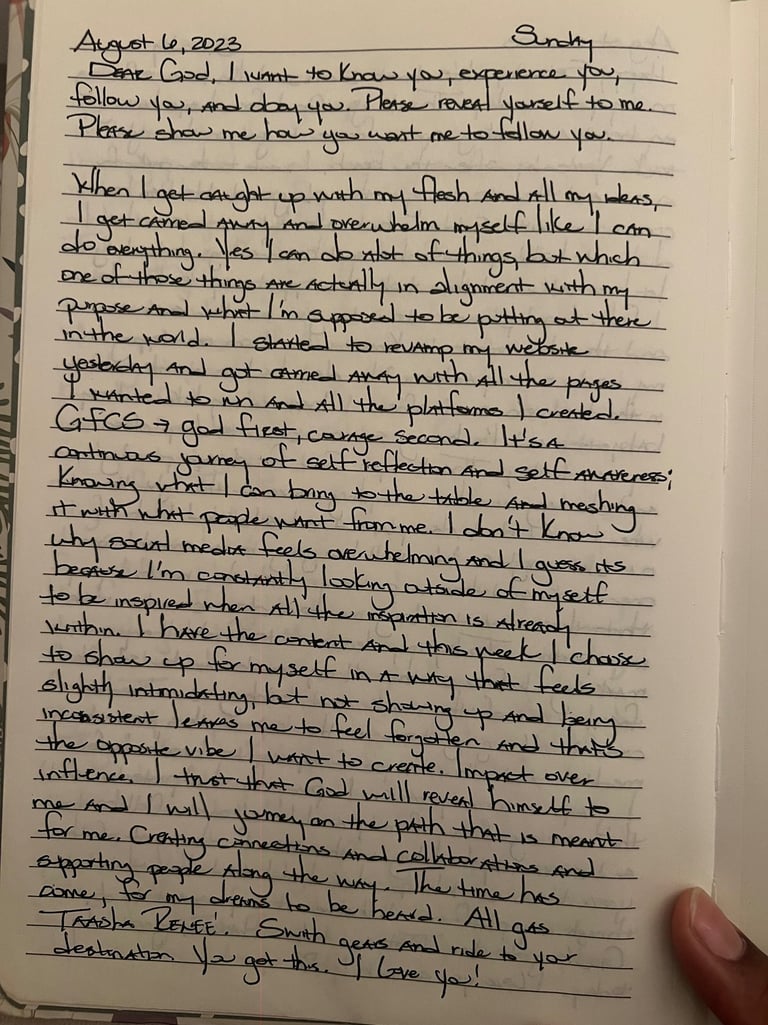 August 6, 2023 Sunday
Dear God, I want to know you, experience you,
follow you, and obey you. Please reveal yourself to me.
Please show me how you want me to follow you.
When I get caught up with my flesh and all my ideas,
I get carried away and overwhelm myself like I can
do everything. Yes I can do alot of things, but which
one of those things are actually in alignment with my
purpose and what I'm supposed to be putting out there
in the world. I started to revamp my website
yesterday and got carried away with all the pages
I wanted to run and all the platforms I created.
GFCS → god first, courage second. It's a
continuous journey of self reflection and self awareness;
knowing what I can bring to the table and meshing
it with what people want from me. I don't know
why social media feels overwhelming and I guess its
because I'm constantly looking outside of myself
to be inspired when all the inspiration is already
within. I have the content and this week I choose
to show up for myself in a way that feels
slightly intimidating, but not showing up and being
inconsistent leaves me to feel forgotten and that's
the opposite vibe I want to create. Impact over
influence. I trust that God will reveal himself to
me and I will journey on the path that is meant
for me. Creating connections and collaborations and
supporting people along the way. The time has
come, for my dreams to be heard. All gas
Taasha Reneé. Swith gears and ride to your
destination. You got this. I love you!